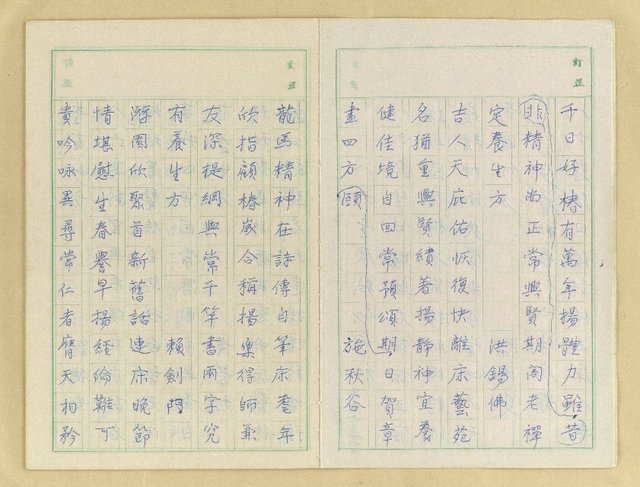 訂正
千日好椿有萬年揚體力雖昔
非精神尚正常興賢期閣老禪
定養生方　洪錫佛
吉人天庇佑恢復快離床藝苑
名猶重興賢績著揚靜神宜養
健佳境自回常預頌期日賀章
畫四方頤　施秋谷
訂正
龍馬精神在詩傳自筆床耄年
欣指顧椿歲合稱揚樂得師兼
友深提綱與常千竿書兩字究
有養生方　賴劍門
潛園欣聚首新舊話連床晚節
情堪慰生春譽早揚經綸難可
貴吟咏異尋常仁者膺天相矜